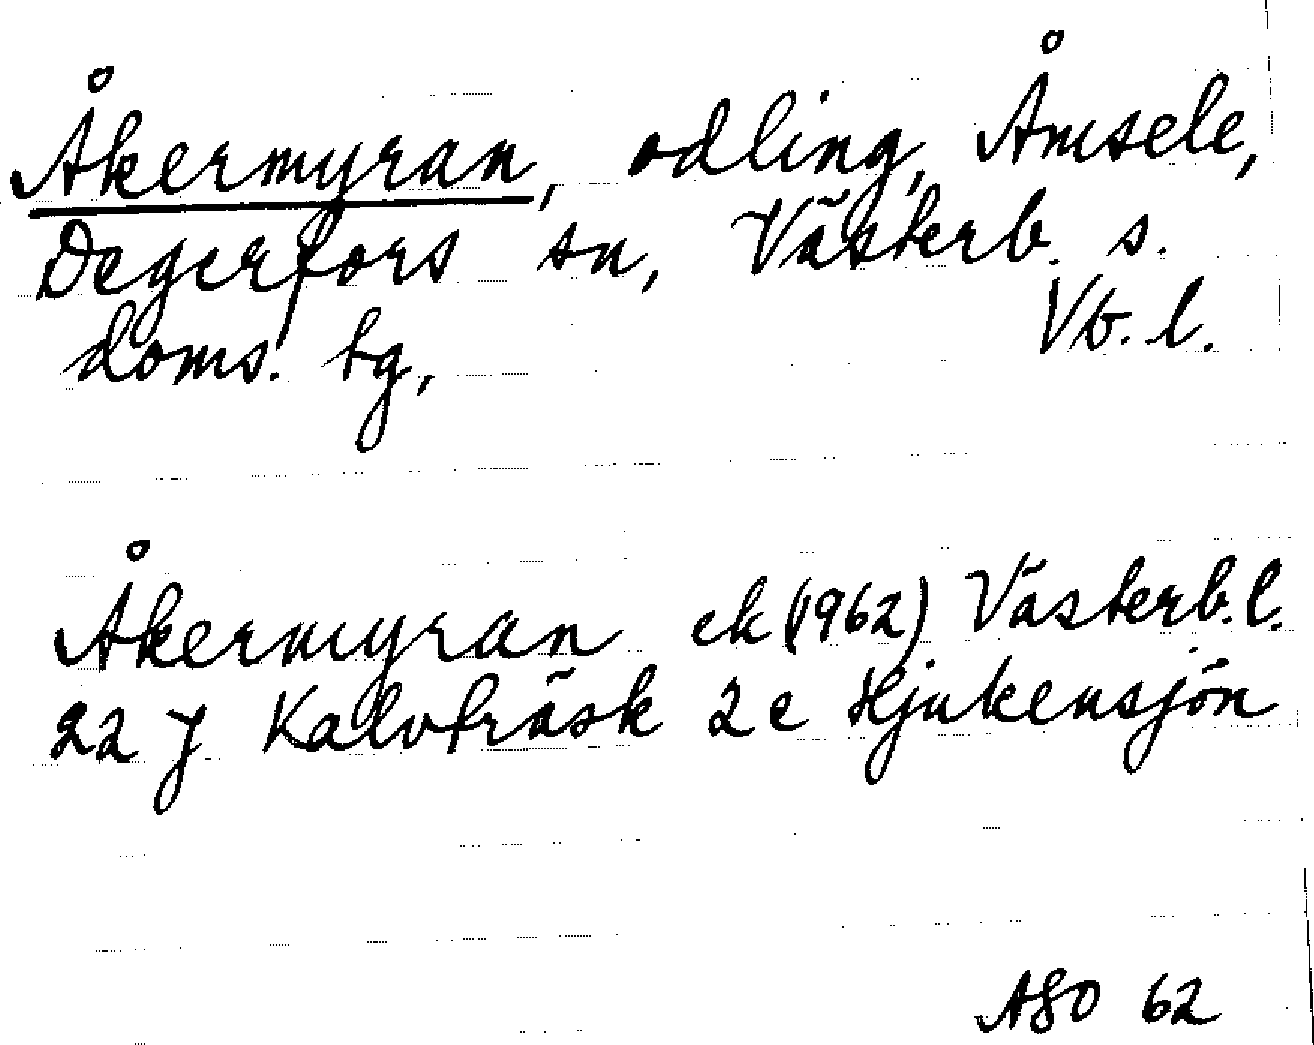 Åkermyran, odling, Åmsele,
Degerfors sn, Västerb. s.
doms. tg, Vb. l.
Åkermyran ek (1962) Västerb. l.
22 J Kalvträsk 2e Hjukensjön
ASO 62